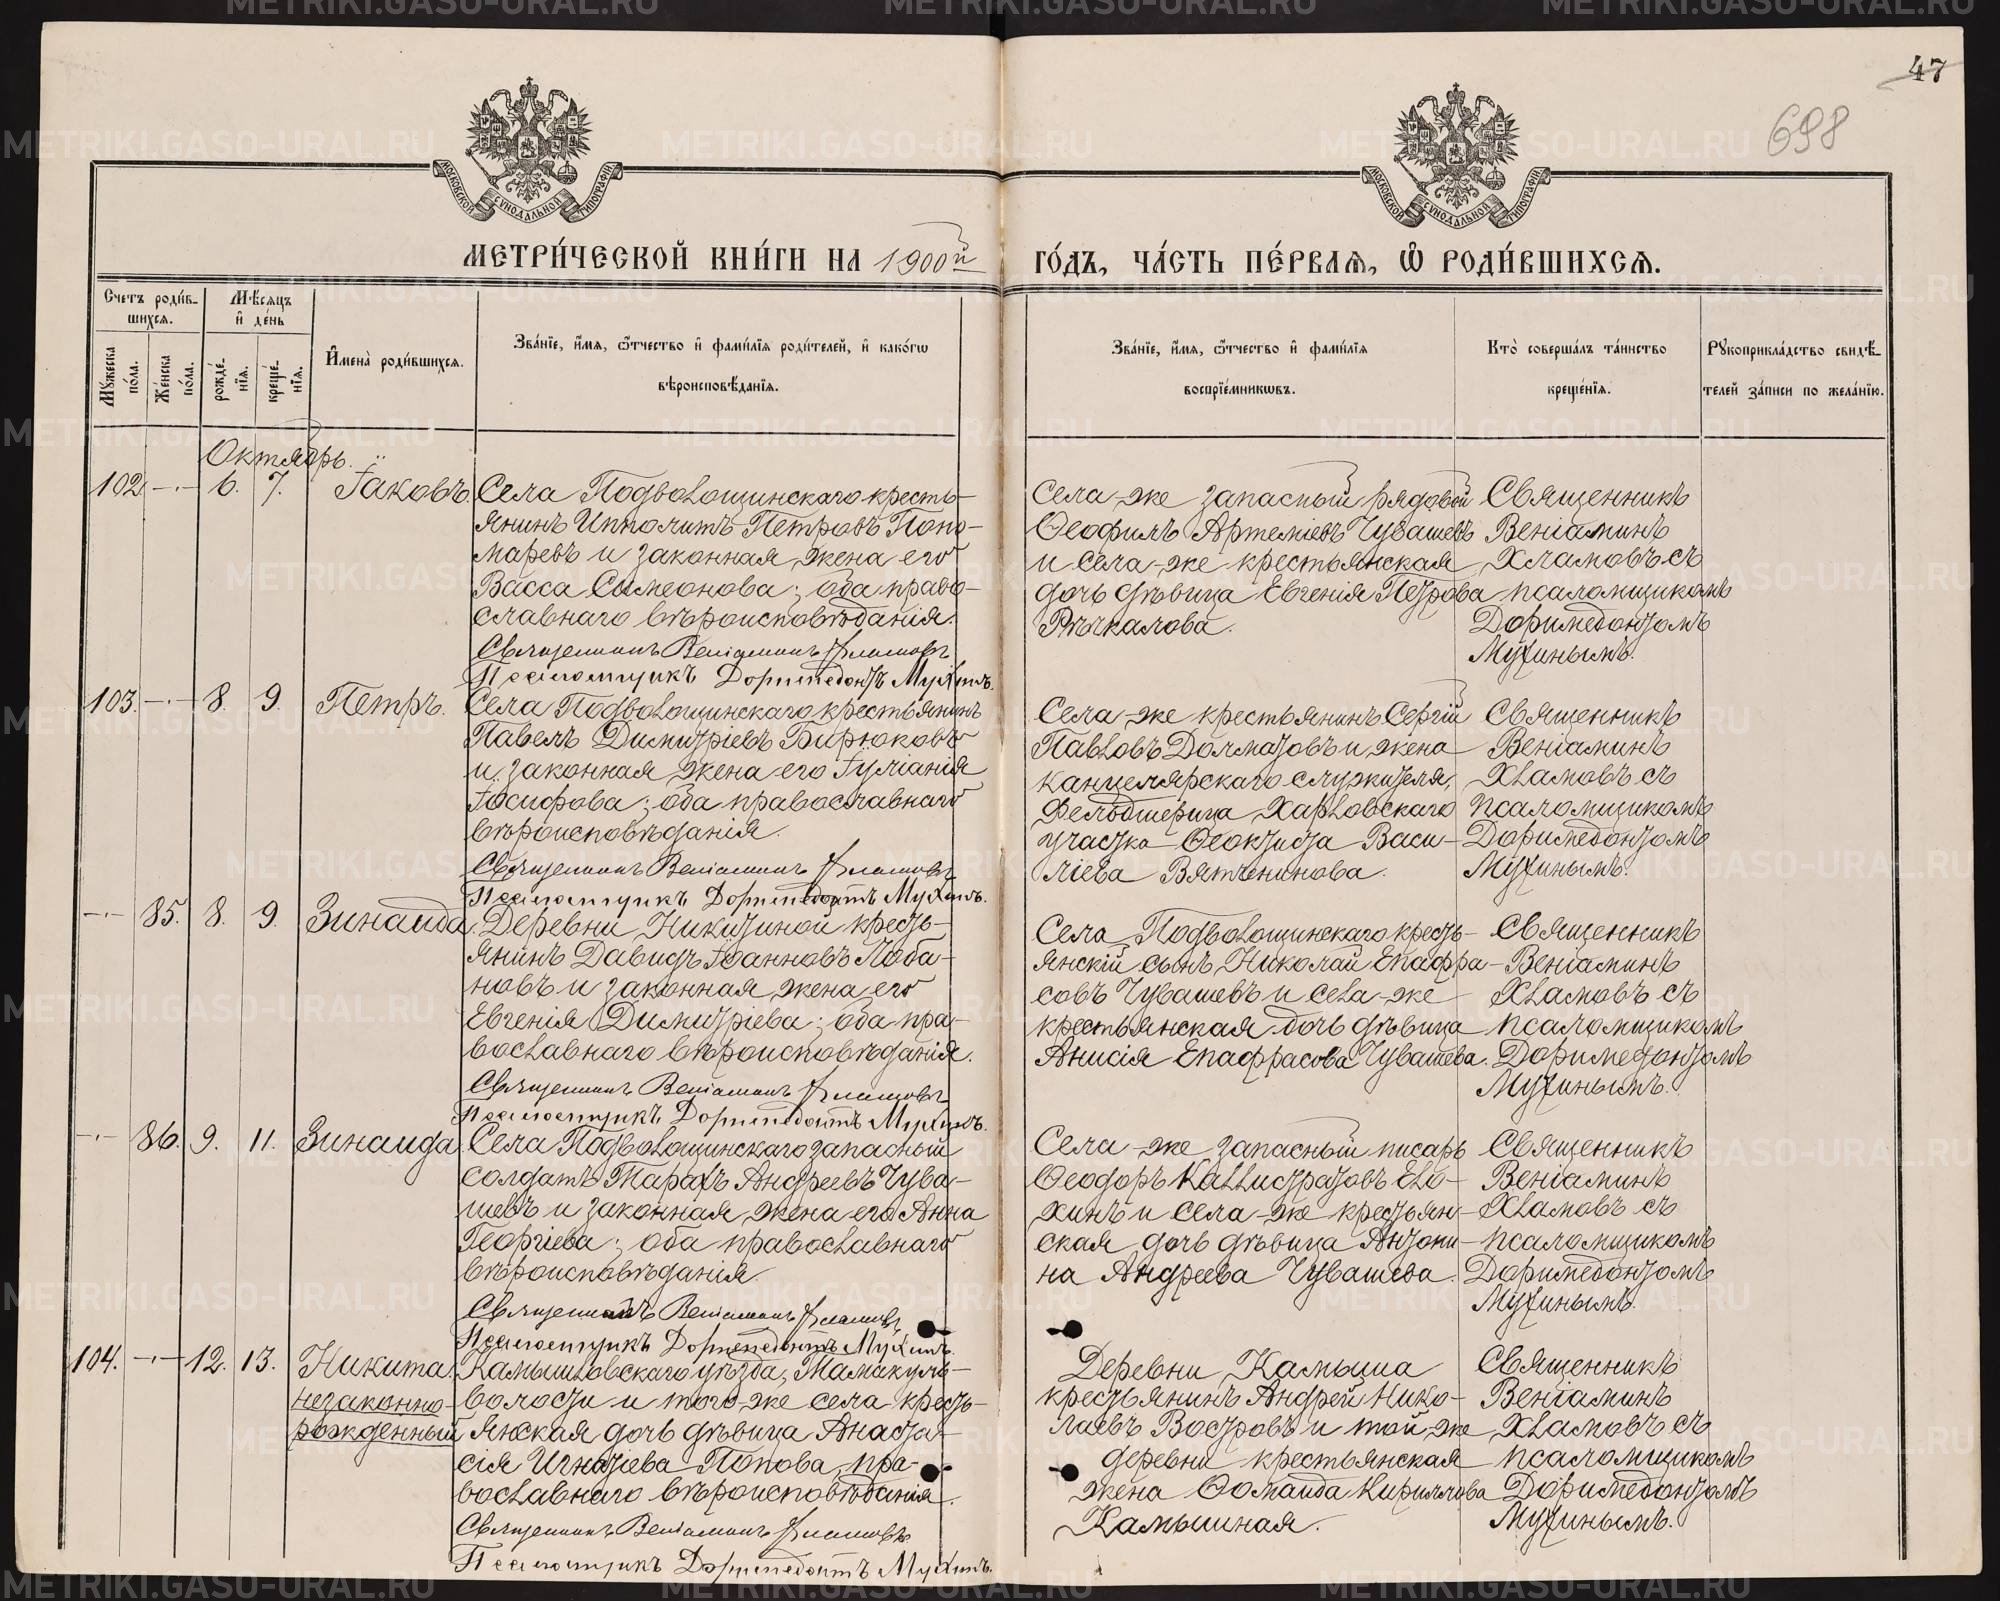 47
698
МОСКОВСКОЙ СУНОДАЛЬНОЙ ТИПОГРАФІИ
МОСКОВСКОЙ СУНОДАЛЬНОЙ ТИПОГРАФІИ
МЕТРИ́ЧЕСКОЙ КНИ́ГИ НА 1900й ГО́ДЪ, ЧА́СТЬ ПЕ́РВАѦ, Ѽ РОДИ́ВШИХСѦ.
Счетъ роди́в-
шихсѧ.
Мѣ́сѧцъ
и҆ де́нь
Мꙋ́жеска
по́ла.
Же́нска
по́ла.
рожде́-
нїѧ.
креще́-
нїѧ.
И҆мена̀ роди́вшихсѧ.
Зва́нїе, и҆́мѧ, ѻ҆́тчество и҆ фами́лїѧ роди́телей, и҆ како́гѡ
вѣроисповѣ́данїѧ.
Зва́нїе, и҆́мѧ, ѻ҆́тчество и҆ фами́лїѧ
воспрїе́мникѡвъ.
Кто̀ соверша́лъ та́инство
креще́нїѧ.
Рꙋкоприкла́дство свидѣ́-
телей за́писи по жела́нїю.
Октябрь.
102 -·- 6. 7. Іаковъ.
Села Подволощинскаго кресть-
янинъ Ипполитъ Петровъ Поно-
маревъ и законная жена его
Васса Симеонова; оба право-
славнаго вѣроисповѣданія.
Священникъ Веніаминъ Хламовъ
Псаломщикъ Доримедонтъ Мухинъ.
Села-же запасный рядовой
Ѳеофилъ Артеміевъ Чувашевъ
и села-же крестьянская
дочь дѣвица Евгенія Петрова
Рѣчкалова.
Священникъ
Веніаминъ
Хламовъ съ
псаломщикомъ
Доримедонтомъ
Мухинымъ.
103. -·- 8. 9. Петръ.
Села Подволощинскаго крестьянинъ
Павелъ Димитріевъ Бирюковъ
и законная жена его Іуліанія
Іосифова; оба православнаго
вѣроисповѣданія.
Священникъ Веніаминъ Хламовъ
Псаломщикъ Доримедонтъ Мухинъ.
Села-же крестьянинъ Сергій
Павловъ Долматовъ и жена
канцелярскаго служителя,
Фельдшерица Харловскаго
участка Ѳеоктиста Васи-
ліева Вятчинова.
Священникъ
Веніаминъ
Хламовъ съ
псаломщикомъ
Доримедонтомъ
Мухинымъ.
-·- 85. 8. 9. Зинаида.
Деревни Никитиной кресть-
янинъ Давидъ Іоанновъ Лоба-
новъ и законная жена его
Евгенія Димитріева; оба пра-
вославнаго вѣроисповѣданія.
Священникъ Веніаминъ Хламовъ
Псаломщикъ Доримедонтъ Мухинъ.
Села Подволощинскаго кресть-
янскій сынъ Николай Епафра-
совъ Чувашевъ и села-же
крестьянская дочь дѣвица
Анисія Епафрасова Чувашева.
Священникъ
Веніаминъ
Хламовъ съ
псаломщикомъ
Доримедонтомъ
Мухинымъ.
-·- 86. 9. 11. Зинаида
Села Подволощинскаго запасный
солдатъ Тарахъ Андреевъ Чува-
шевъ и законная жена его Анна
Георгіева; оба православнаго
вѣроисповѣданія.
Священникъ Веніаминъ Хламовъ
Псаломщикъ Доримедонтъ Мухинъ.
Села-же запасный писарь
Ѳеодоръ Каллистратовъ Ело-
хинъ и села-же крестьян-
ская дочь дѣвица Антони-
на Андреева Чувашева.
Священникъ
Веніаминъ
Хламовъ съ
псаломщикомъ
Доримедонтомъ
Мухинымъ.
104. -·- 12. 13. Никита
незаконно-
рожденный
Камышловскаго уѣзда, Мамакуль-
волости и того-же села кресть-
янская дочь дѣвица Анаста-
сія Игнатіева Попова, пра-
вославнаго вѣроисповѣданія.
Священникъ Веніаминъ Хламовъ
Псаломщикъ Доримедонтъ Мухинъ.
Деревни Камыша
крестьянинъ Андрей Нико-
лаевъ Востровъ и той-же
деревни крестьянская
жена Ѳомаида Кириллова
Камышная.
Священникъ
Веніаминъ
Хламовъ съ
псаломщикомъ
Доримедонтомъ
Мухинымъ.